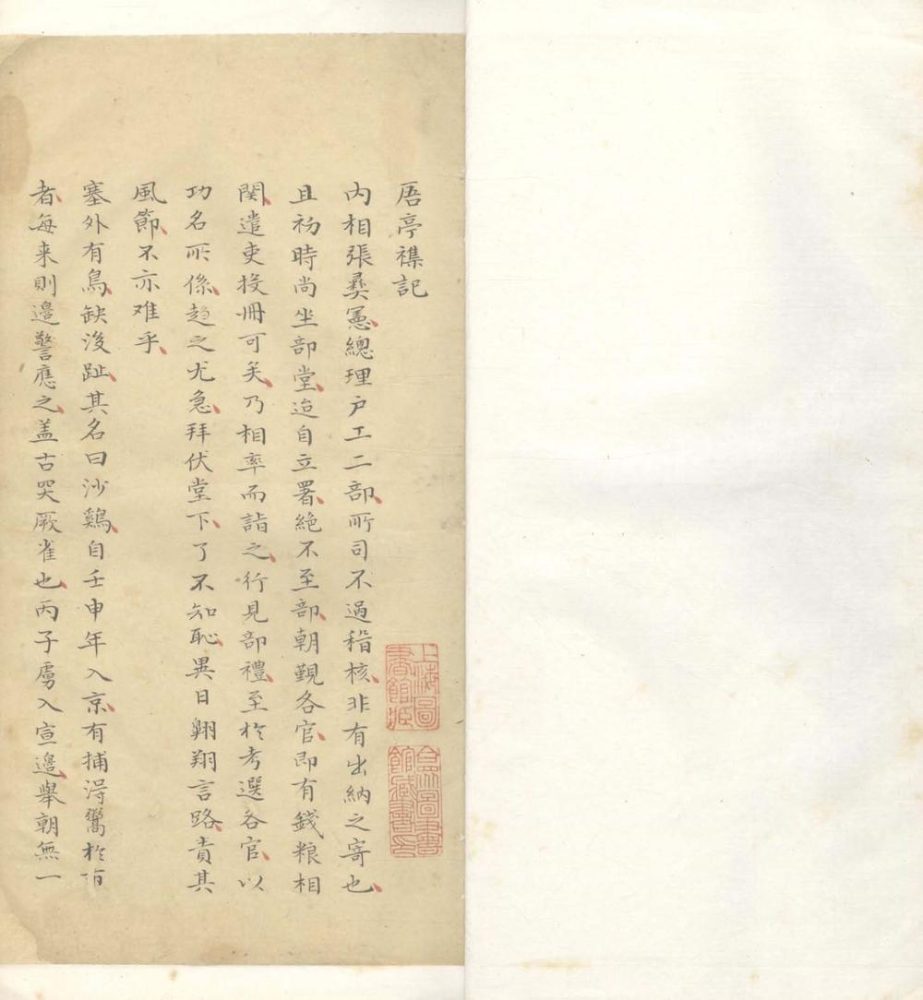 㕌亭襍記
内相張彜憲總理户工二部所司不過稽核非有出納之寄也
且初時尚坐部堂迨自立署絶不至部朝覲各官即有錢粮相
関遣吏投冊可矣乃相率而詣之行見部禮至扵考選各官以
功名所係趋之尤急拜伏堂下了不知恥異日翺翔言路責其
風節不亦难乎
塞外有鳥缺後趾其名曰沙鷄自壬申年入京有捕得鬻扵市
者每来則邉警應之盖古哭厥雀也丙子虜入宣邉舉朝無一
上海圖書館藏